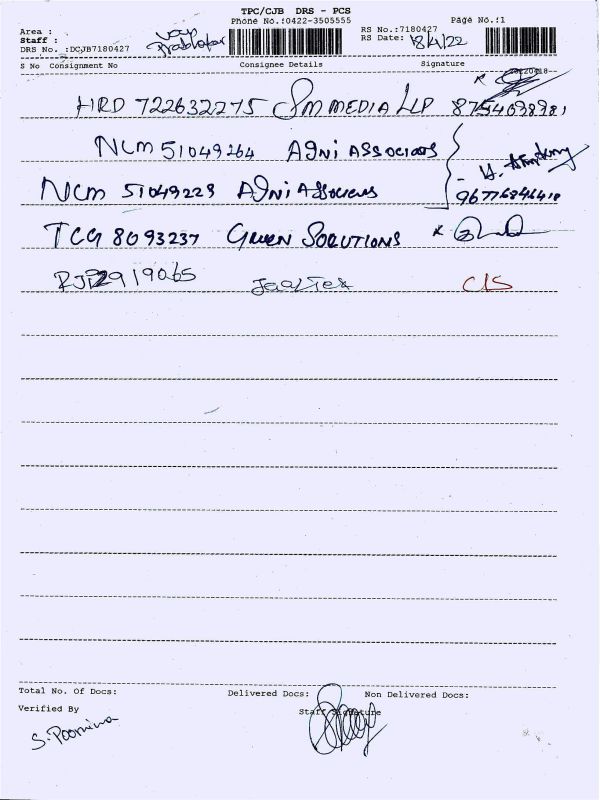 TPC/CJB DRS - PCS
Phone No.:0422-3505555
Page No.:1
Area :
Staff :
Prabhakar
RS No.:7180427
RS Date: 18/4/22
DRS No. :DCJB7180427
S No Consignment No Consignee Details Signature
HRD 722632275 SM MEDIA LLP 8754698981
NCM 51049264 AGNI ASSOCIATES
NCM 51049229 AGNI ASSOCIATES 9677684641
TCG 8093237 GREEN SOLUTIONS
RJP2919065 CIS
Total No. Of Docs: Delivered Docs: Non Delivered Docs:
Verified By Staff Signature
S. Poornima